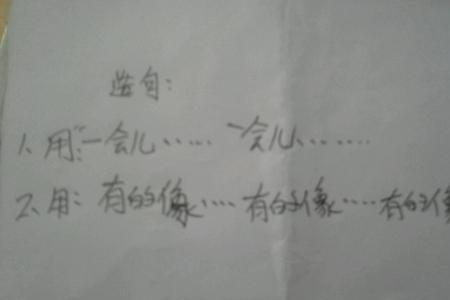 造句:
1、用:"一会儿…… 一会儿……
2、用: 有的像…… 有的像…… 有的像